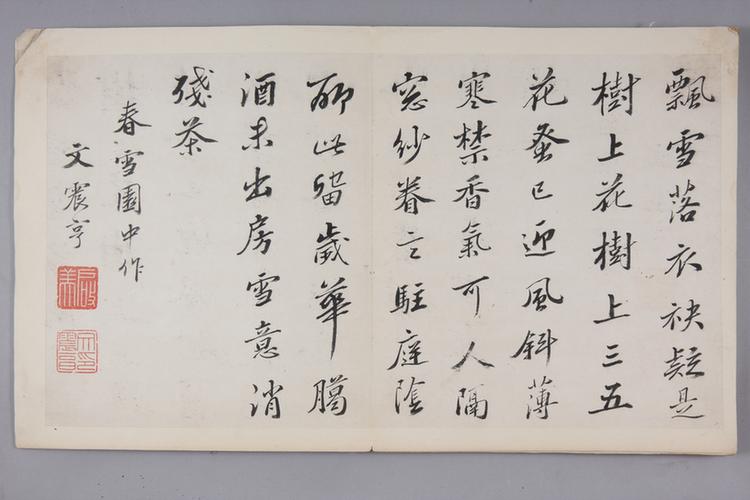 飄雪落衣袂疑是
樹上花樹上三五
花蚤已迎風斜薄
寒禁香氣可人隔
窓紗眷言駐庭陰
聊此留歲華臈
酒未出房雪意消
殘茶
春雪園中作
文震亨
啟美